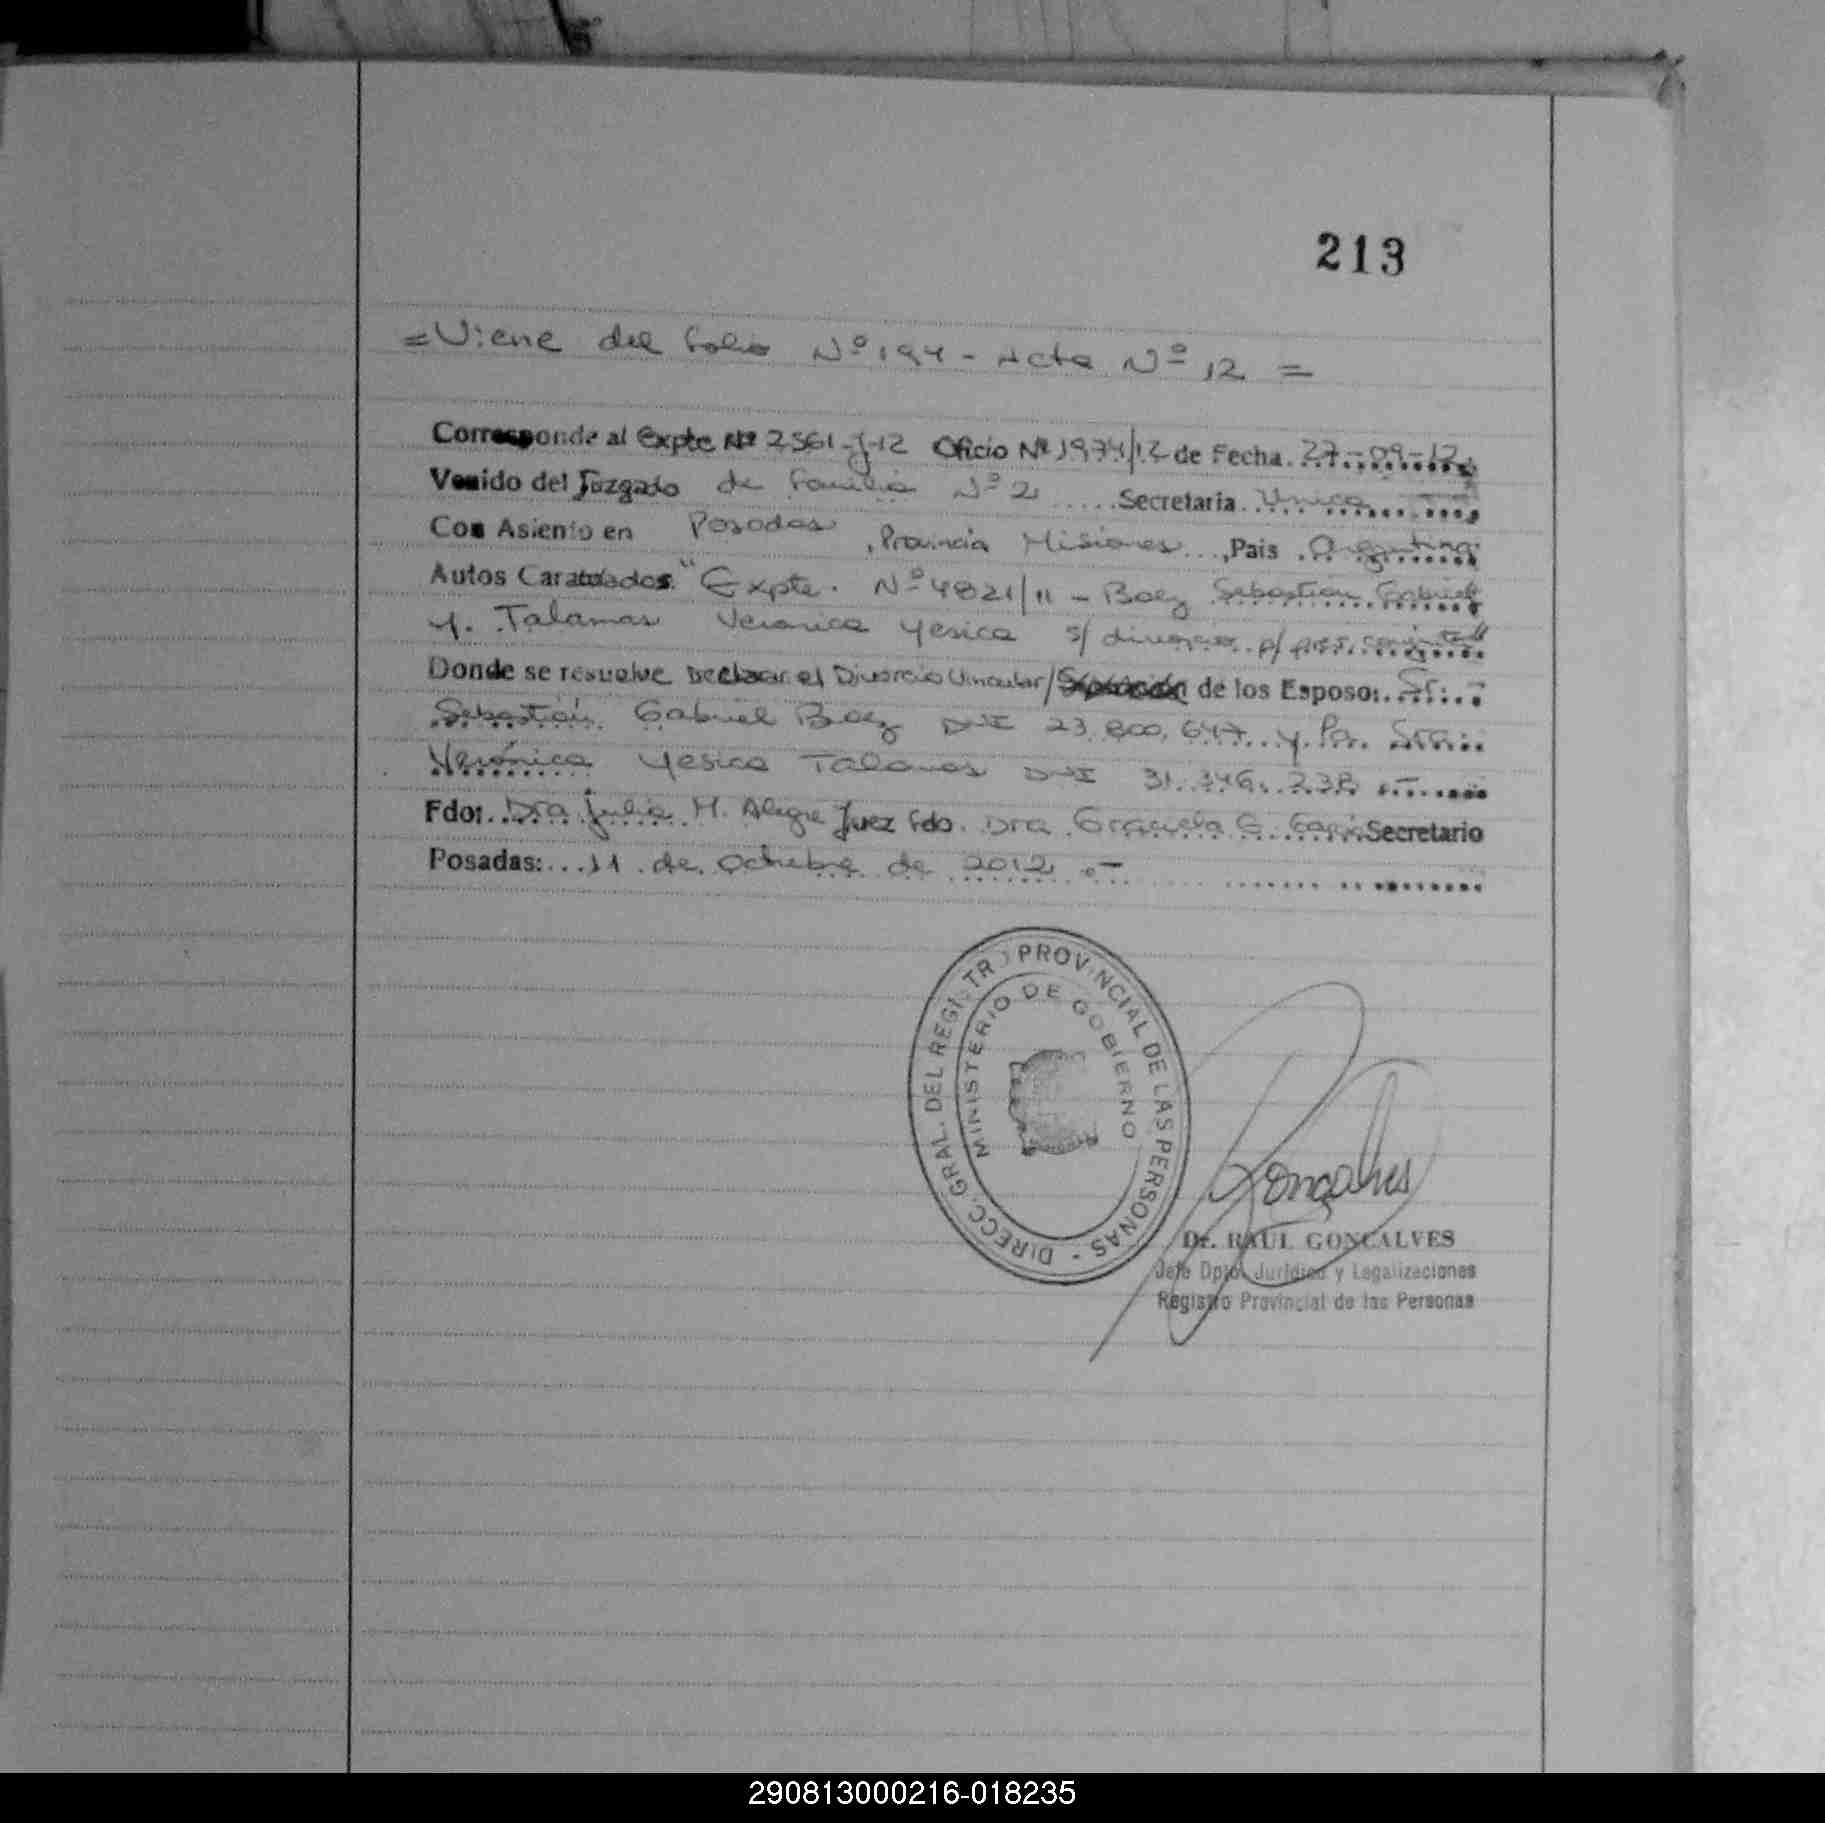 213
= Viene del folio Nº 194 - Acta Nº 12 =
Corresponde al Expte Nº 2561-J-12 Oficio Nº 1974/12 de Fecha 27-09-12
Venido del Juzgado de Familia Nº 2 Secretaria Unica
Con Asiento en Posadas, Provincia Misiones, Pais Argentina
Autos Caratulados "Expte. Nº 4821/11 - Baez Sebastián Gabriel
y Talamas Veronica Yesica s/ divorcio p/ pres. conjunta"
Donde se resuelve Declarar el Divorcio Vincular/ de los Esposo: Sr.
Sebastián Gabriel Baez DNI 23.800.647 y la Sra.
Verónica Yesica Talamas DNI 31.346.238 .-
Fdo: Dra Julia M. Alegre Juez fdo. Dra Graciela G. Secretario
Posadas: 11 de Octubre de 2012 .-
DIRECC. GRAL. DEL REGISTRO PROVINCIAL DE LAS PERSONAS -
MINISTERIO DE GOBIERNO
Gonçalves
Dr. RAUL GONCALVES
Jefe Dpto. Jurídico y Legalizaciones
Registro Provincial de las Personas
290813000216-018235